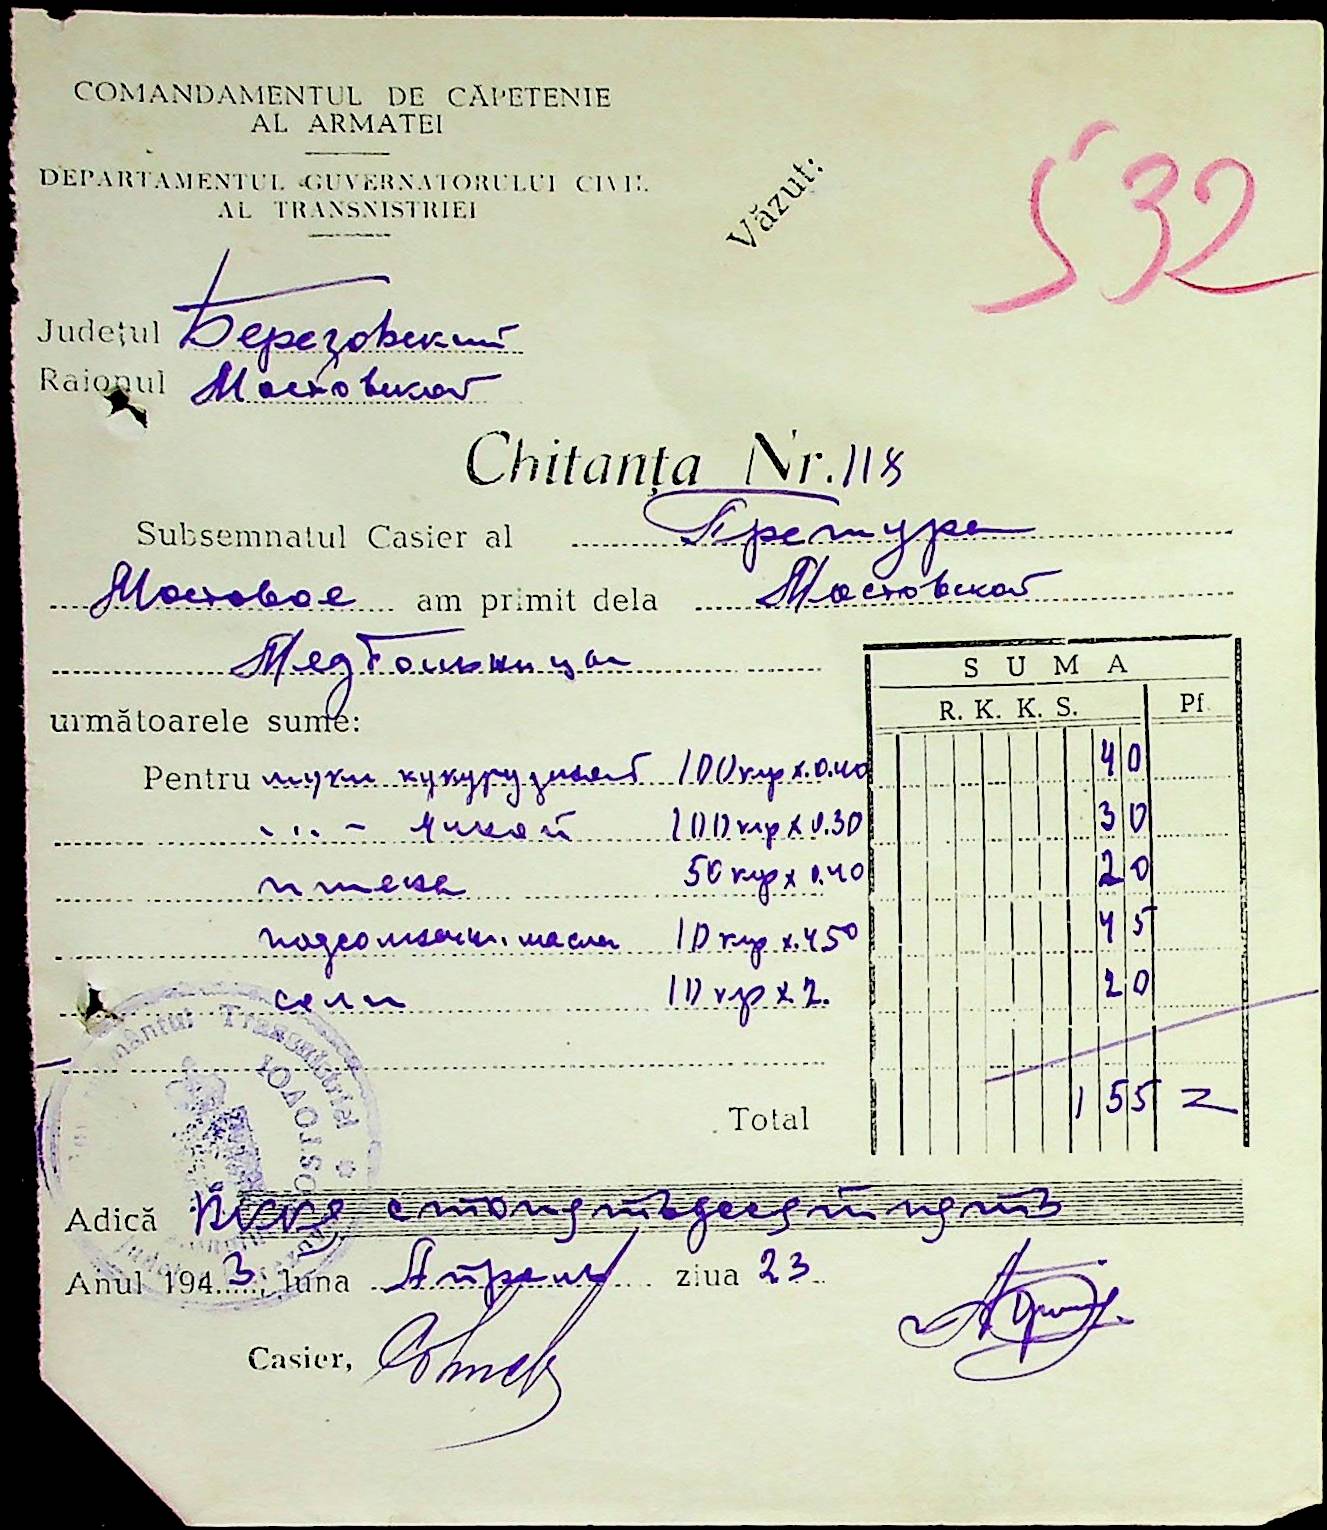 COMANDAMENTUL DE CĂPETENIE
AL ARMATEI
DEPARTAMENTUL GUVERNATORULUI CIVIL
AL TRANSNISTRIEI
Văzut:
532
Județul Березовский
Raionul Мостовской
Chitanța Nr. 118
Subsemnatul Casier al Претура
Мостовое am primit dela Мостовской
Медбольница
următoarele sume:
SUMA
R. K. K. S. Pf.
Pentru муки кукурузной 100 кгр х 0.40 40
100 кгр х 0.30 30
пшена 50 кгр х 0.40 20
подсолнечн. масла 10 кгр х 4.50 45
соли 10 кгр х 2. 20
Total 155
Transnistriei
MOSTOVOI
Adică стопятьдесятпять
Anul 1943, luna Апрель ziua 23
Casier,